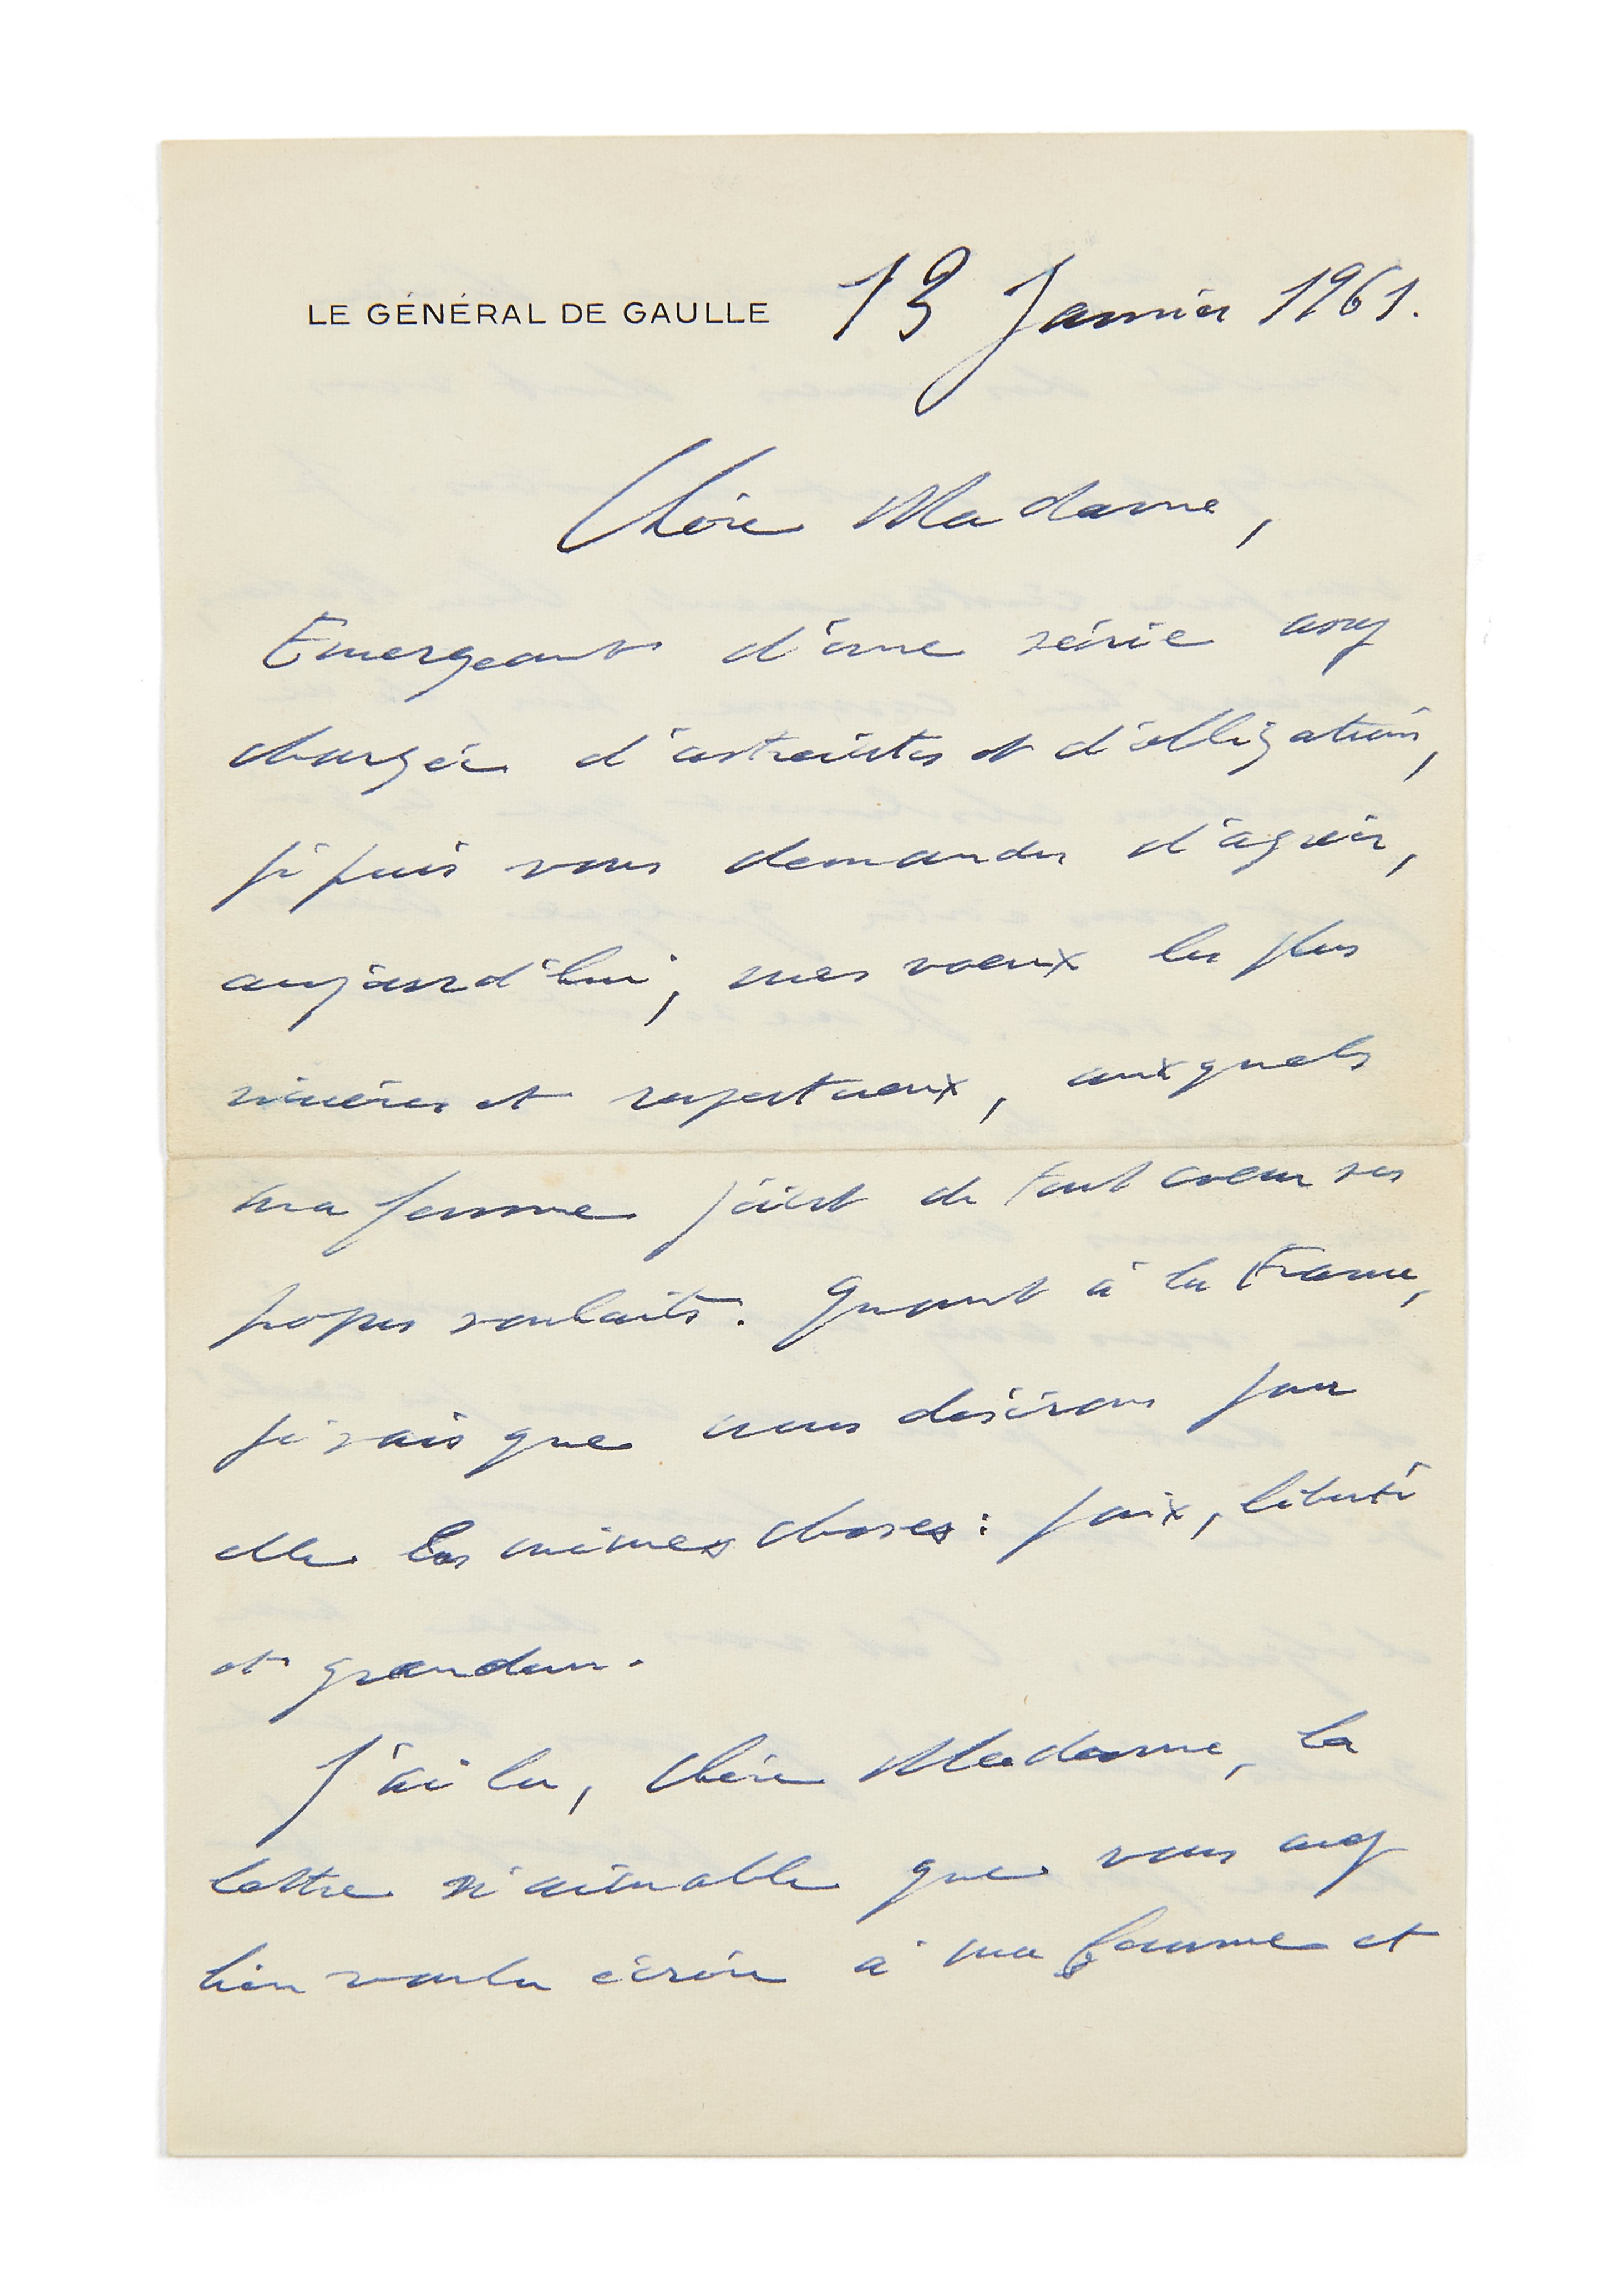 LE GÉNÉRAL DE GAULLE 13 Janvier 1961.
Chère Madame,
Emergeant d'une série assez
chargée d'astreintes et d'obligations,
je puis vous demander d'agréer,
aujourd'hui, mes voeux les plus
sincères et respectueux, auxquels
ma femme joint de tout coeur ses
propres souhaits. Quant à la France,
je sais que nous désirons pour
elle les mêmes choses : paix, liberté
et grandeur.
J'ai lu, chère Madame, la
lettre si aimable que vous avez
bien voulu écrire à ma femme et